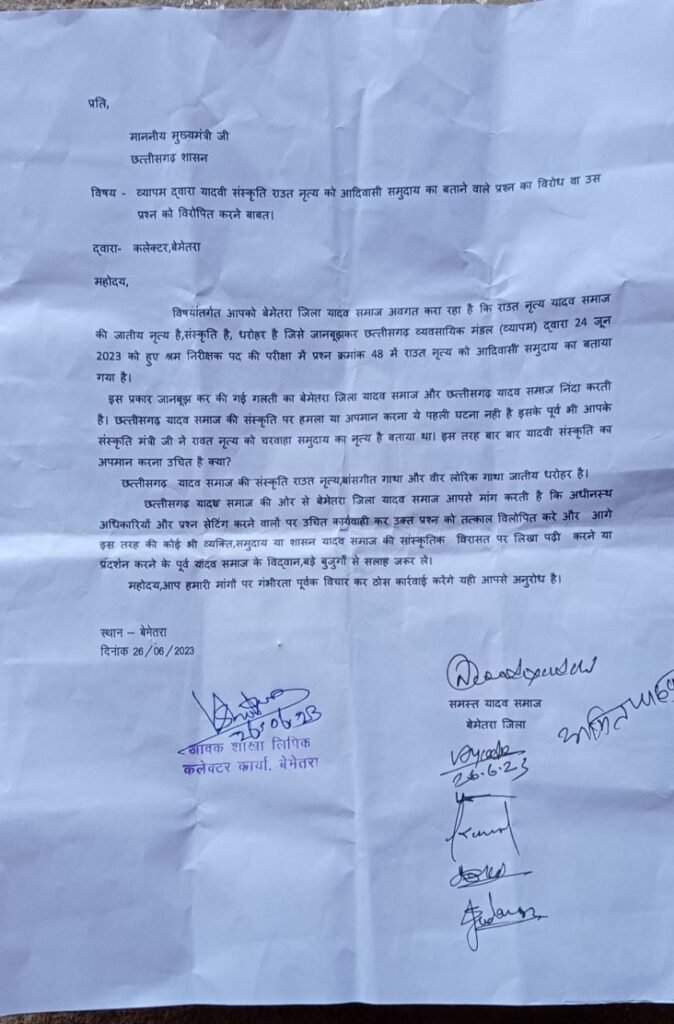 प्रति,
माननीय मुख्यमंत्री जी
छत्तीसगढ़ शासन
विषय - व्यापम द्वारा यादवी संस्कृति राउत नृत्य को आदिवासी समुदाय का बताने वाले प्रश्न का विरोध वा उस
प्रश्न को विरोपित करने बाबत।
द्वारा- कलेक्टर,बेमेतरा
महोदय,
विषयांतर्गत आपको बेमेतरा जिला यादव समाज अवगत करा रहा है कि राउत नृत्य यादव समाज
की जातीय नृत्य है,संस्कृति है, धरोहर है जिसे जानबूझकर छत्तीसगढ़ व्यवसायिक मंडल (व्यापम) द्वारा 24 जून
2023 को हुए श्रम निरीक्षक पद की परीक्षा में प्रश्न क्रमांक 48 में राउत नृत्य को आदिवासी समुदाय का बताया
गया है।
इस प्रकार जानबूझ कर की गई गलती का बेमेतरा जिला यादव समाज और छत्तीसगढ़ यादव समाज निंदा करती
है। छत्तीसगढ़ यादव समाज की संस्कृति पर हमला या अपमान करना ये पहली घटना नही है इसके पूर्व भी आपके
संस्कृति मंत्री जी ने रावत नृत्य को चरवाहा समुदाय का नृत्य है बताया था। इस तरह बार बार यादवी संस्कृति का
अपमान करना उचित है क्या?
छत्तीसगढ़ यादव समाज की संस्कृति राउत नृत्य,बांसगीत गाथा और वीर लोरिक गाथा जातीय धरोहर है।
छत्तीसगढ़ यादव समाज की ओर से बेमेतरा जिला यादव समाज आपसे मांग करती है कि अधीनस्थ
अधिकारियों और प्रश्न सेटिंग करने वालों पर उचित कार्यवाही कर उक्त प्रश्न को तत्काल विलोपित करे और आगे
इस तरह की कोई भी व्यक्ति,समुदाय या शासन यादव समाज की सांस्कृतिक विरासत पर लिखा पढ़ी करने या
प्रदर्शन करने के पूर्व यादव समाज के विद्वान,बड़े बुजुर्गो से सलाह जरूर लें।
महोदय,आप हमारी मांगों पर गंभीरता पूर्वक विचार कर ठोस कार्रवाई करेंगे यही आपसे अनुरोध है।
स्थान – बेमेतरा
दिनांक 26/06/2023
समस्त यादव समाज
बेमेतरा जिला
26.06.23
आवक शाखा लिपिक
कलेक्टर कार्या. बेमेतरा
26.6.23